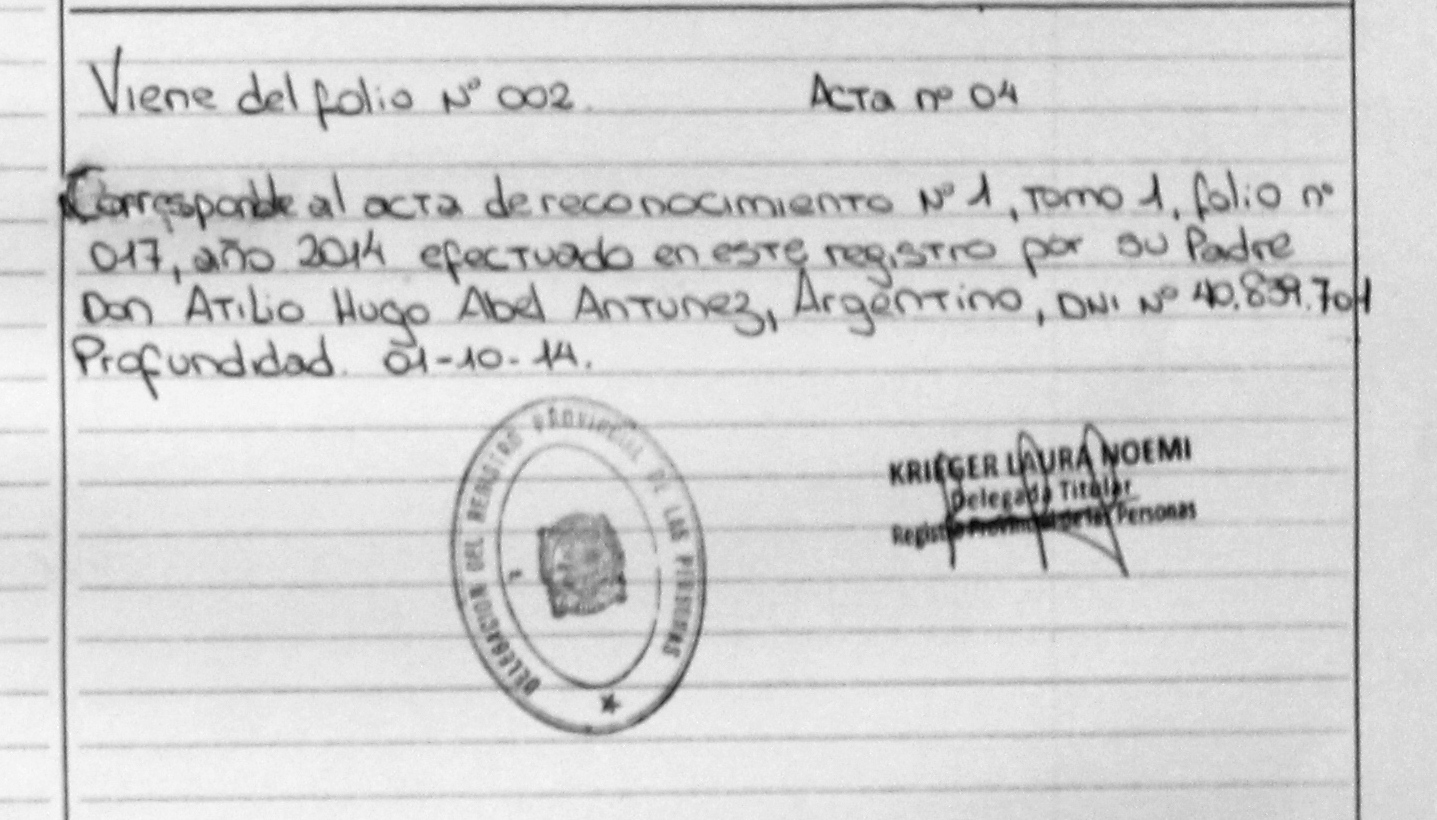 Viene del folio Nº 002. Acta nº 04
Corresponde al acta de reconocimiento Nº 1, Tomo 1, folio nº
017, año 2014 efectuado en este registro por su Padre
Don Atilio Hugo Abel Antunez, Argentino, DNI Nº 40.839.701
Profundidad. 01-10-14.
DELEGACION DEL REGISTRO PROVINCIAL DE LAS PERSONAS
KRIEGER LAURA NOEMI
Delegada Titular
Registro Provincial de las Personas